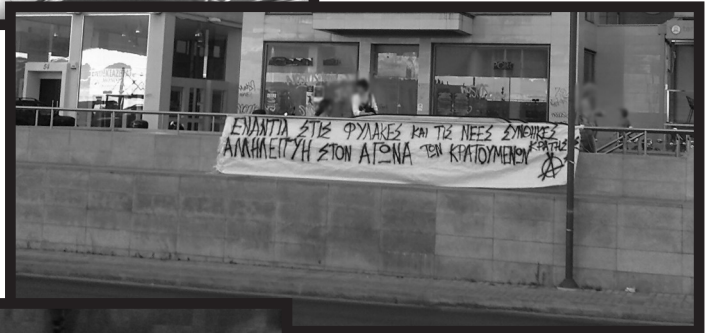 ΕΝΑΝΤΙΑ ΣΤΙΣ ΦΥΛΑΚΕΣ ΚΑΙ ΤΙΣ ΝΕΕΣ ΣΥΝΘΗΚΕΣ ΚΡΑΤΗΣΗΣ
ΑΛΛΗΛΕΓΓΥΗ ΣΤΟΝ ΑΓΩΝΑ ΤΩΝ ΚΡΑΤΟΥΜΕΝΩΝ